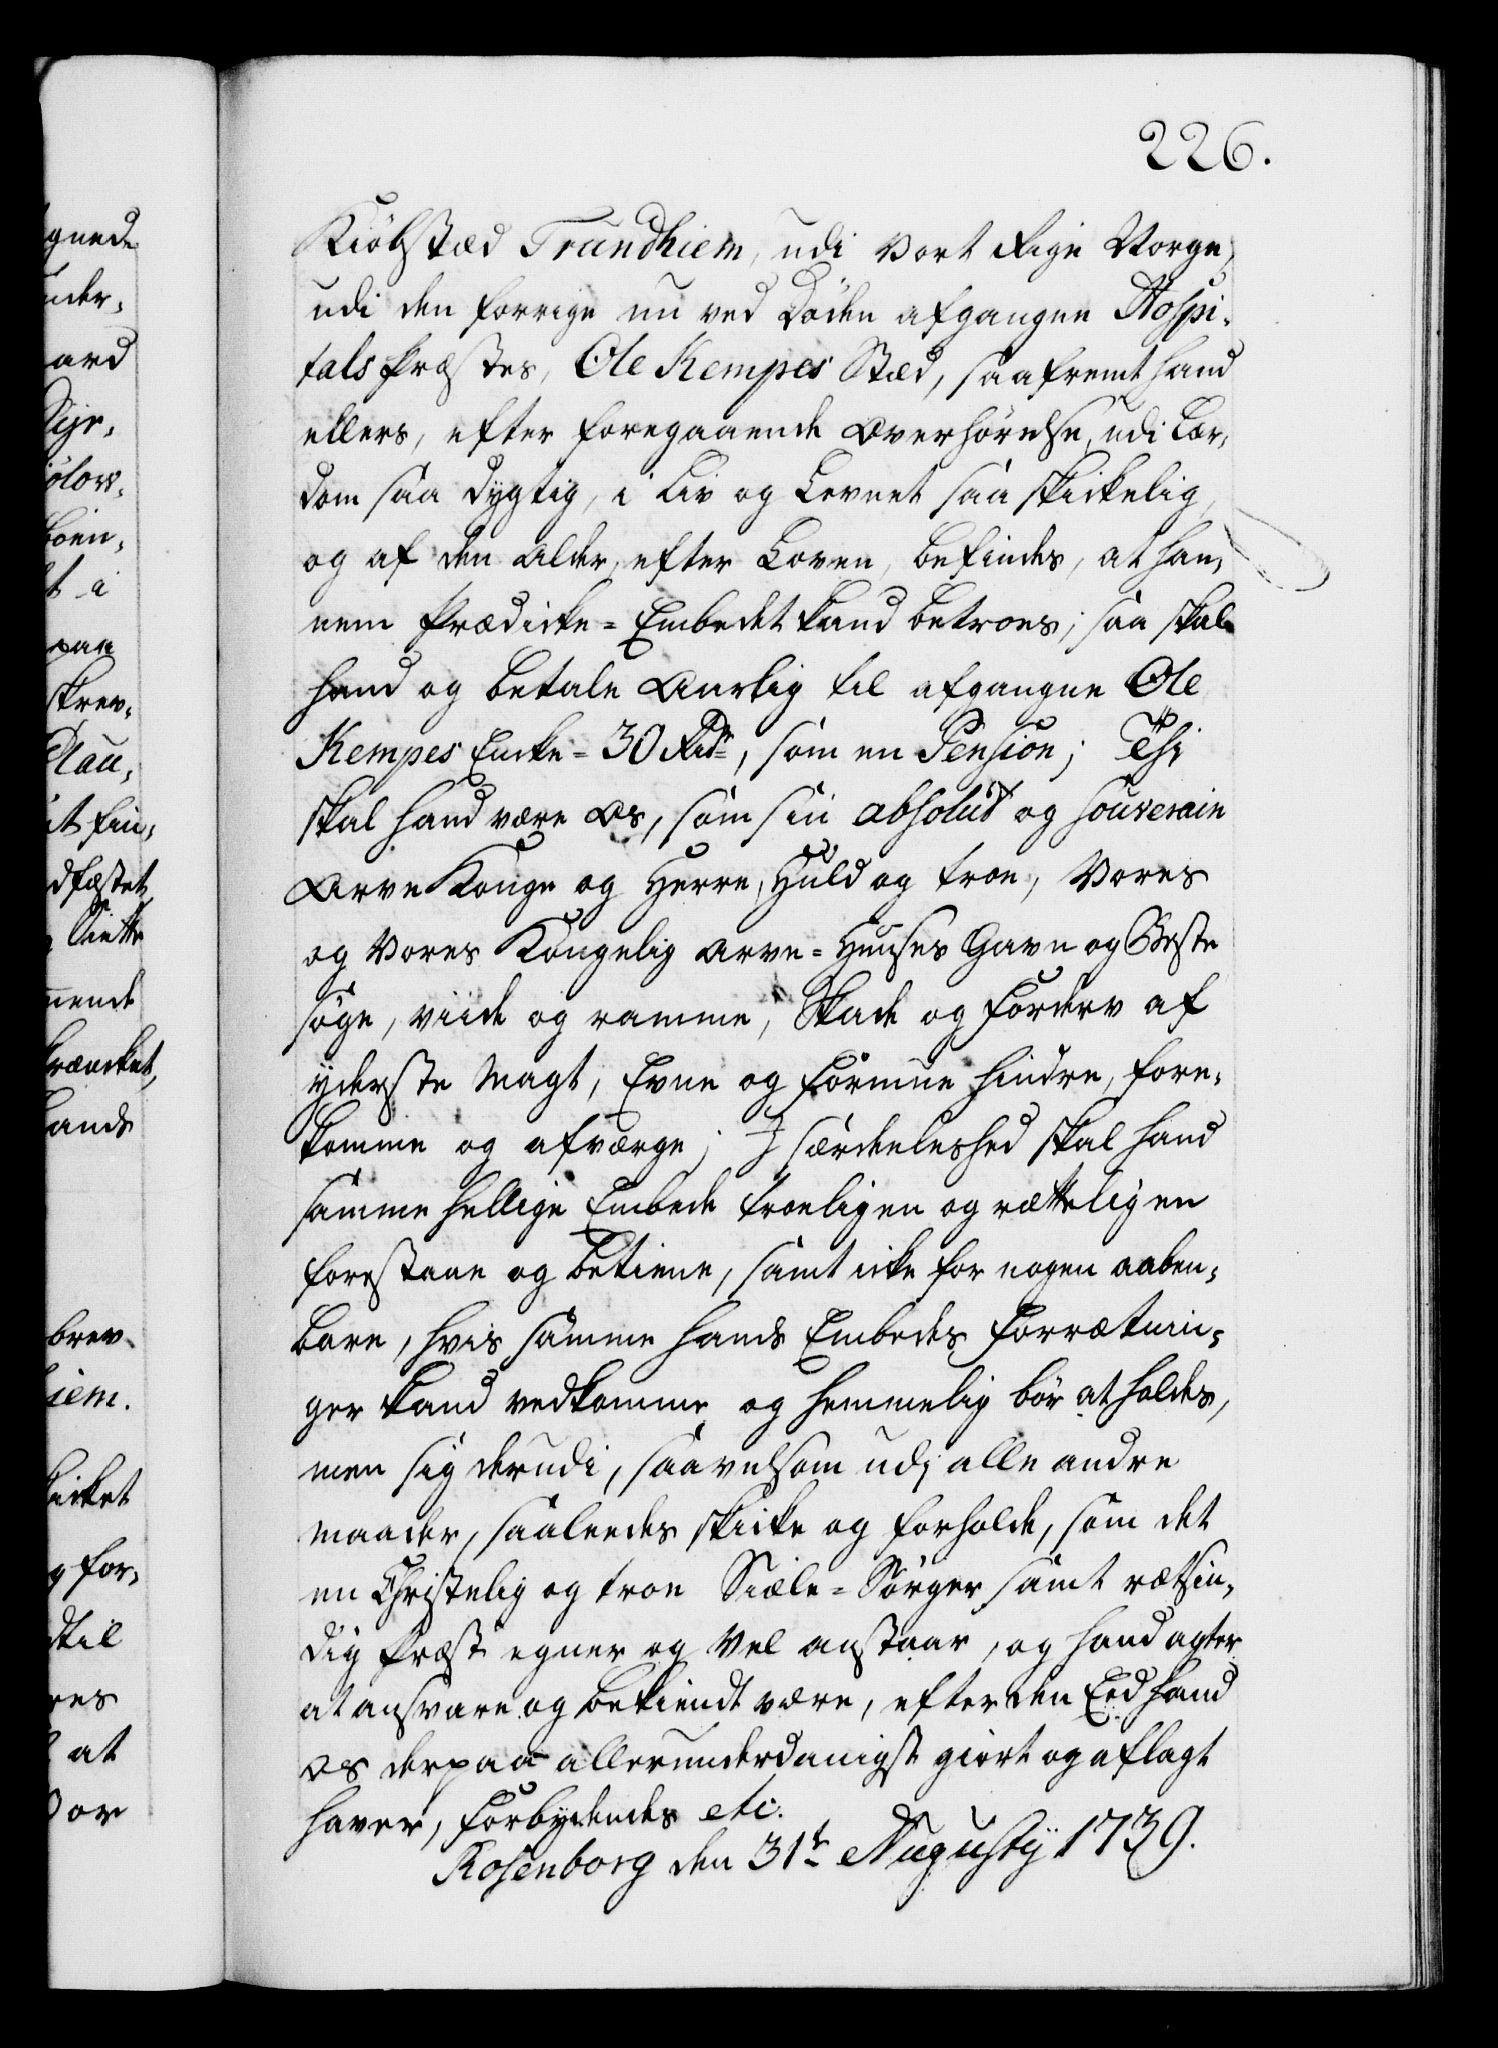 226.
Kiöbstæd Trundhiem, udi Vort Rige Norge,
udi den forrige nu ved Döden afgangne Hospi-
tals Præstes, Ole Kempes Stæd, saafremt hand
ellers, efter foregaaende Overhörelse, udi Lær-
dom saa dygtig, i Liv og Levnet saa skickelig,
og af den Alder, efter Loven, befindes, at han-
nem Prædicke-Embedet kand betroes; saa skal
hand og betale Aarlig til afgangne Ole
Kempes Encke - 30 Rdr, som en Pension; Thi
skal hand være Os, som sin absolut og souverain
Arve Konge og Herre, Huld og troe, Vores
og Vores Kongelig Arve-Huuses Gavn og Beste
söge, viide og ramme, Skade og Forderv af
yderste Magt, Evne og Formue hindre, fore-
komme og afværge; I særdeeleshed skal hand
samme hellige Embede troeligen og rætteligen
forestaae og betiene, samt icke for nogen aaben-
bare, hvis samme hands Embedes Forrætnin-
ger kand vedkomme og hemmelig bör at holdes,
men sig derudi, saavelsom udj alle andre
maader, saaleedes skicke og forholde, som det
en Christelig og troe Siæle-Sörger samt rætsin-
dig Præst egner og vel anstaar, og hand agter
at ansvare og bekiendt være, efter den Eed hand
Os derpaa allerunderdanigst giort og aflagt
haver, Forbydendes etc.
Rosenborg den 31te Augustij 1739.
gnede
nder-
ard
ölow-
t i
paa
skrev-
it fin-
dfæstet
mende
hands
brev
iem.
licket
g for-
dtil
res
at